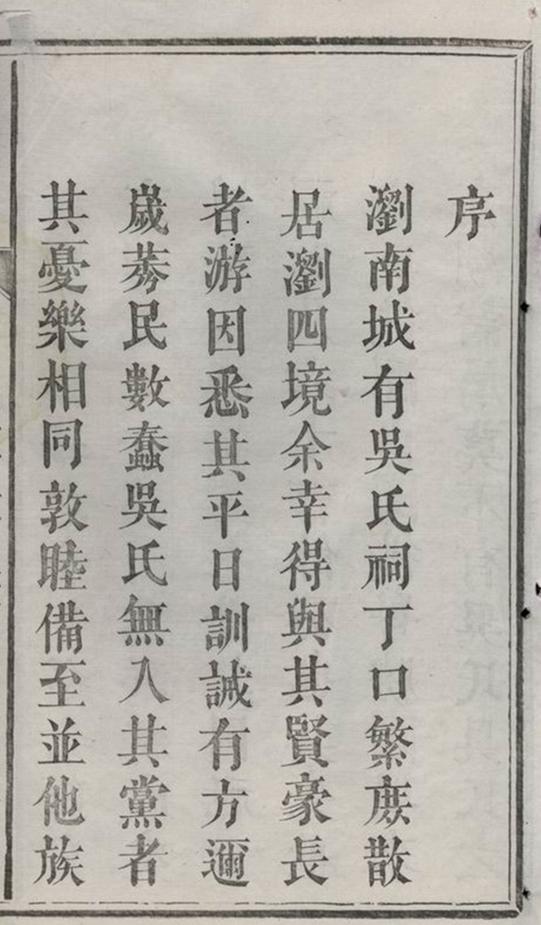 序
瀏南城有吳氏祠丁口繁庶散
居瀏四境余幸得與其賢豪長
者游因悉其平日訓誡有方邇
歲莠民數蠢吳氏無入其黨者
其憂樂相同敦睦備至並他族